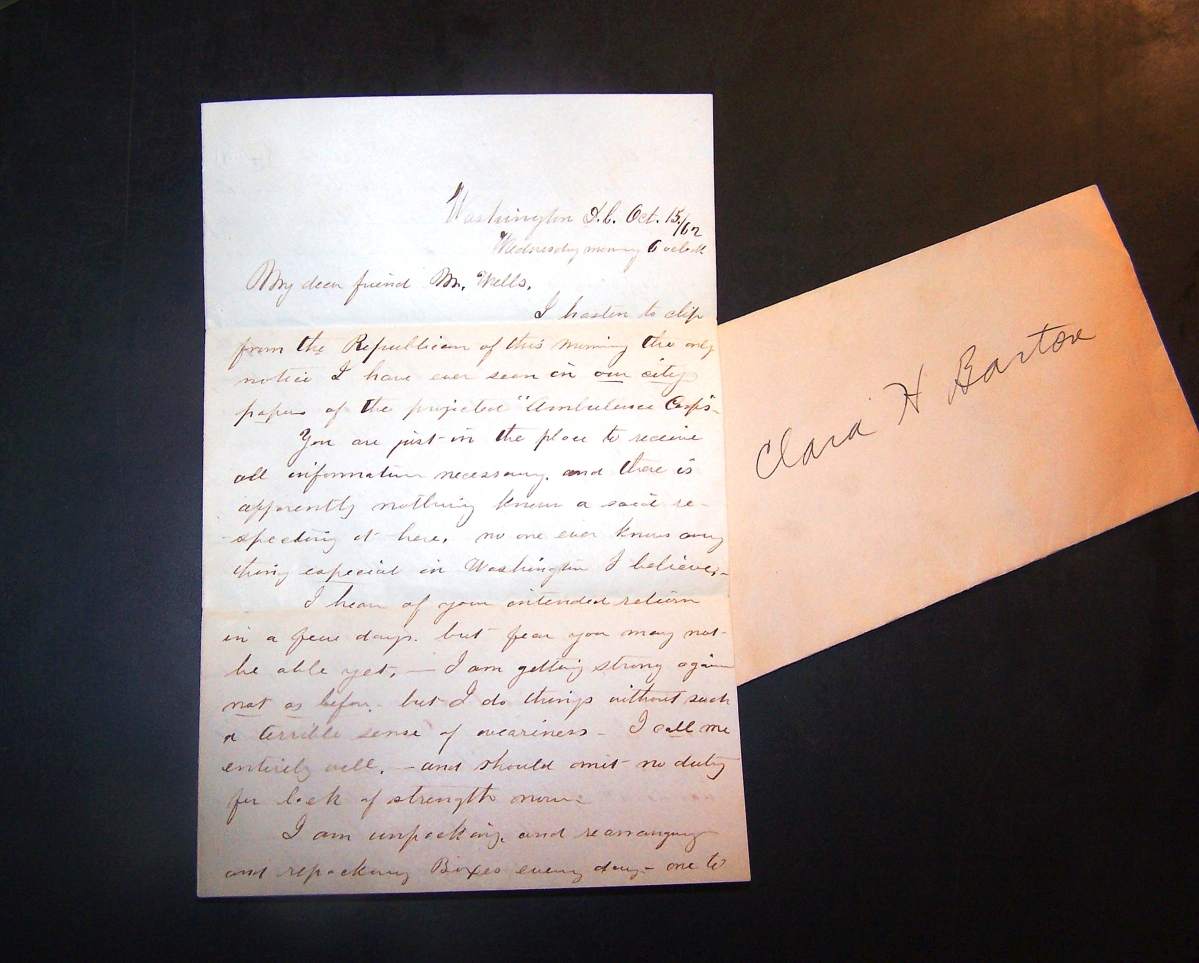 Washington D.C. Oct. 15/62
Wednesday morning 6 oclock
My dear friend Mr. Wells,
I hasten to clip
from the Republican of this morning the only
notice I have ever seen in our city
papers of the projected "Ambulance Corps"-
You are just in the place to receive
all information necessary, and there is
apparently nothing known a said re-
-specting it here, no one ever knows any
thing especial in Washington I believe,-
I hear of your intended return
in a few days. but fear you may not-
be able yet, — I am getting strong again
not as before. but I do things without such
a terrible sense of weariness - I call me
entirely well, — and should omit no duty
for lack of strength now-
I am unpacking, and rearranging
and repacking Boxes every day - one to
Clara H Barton